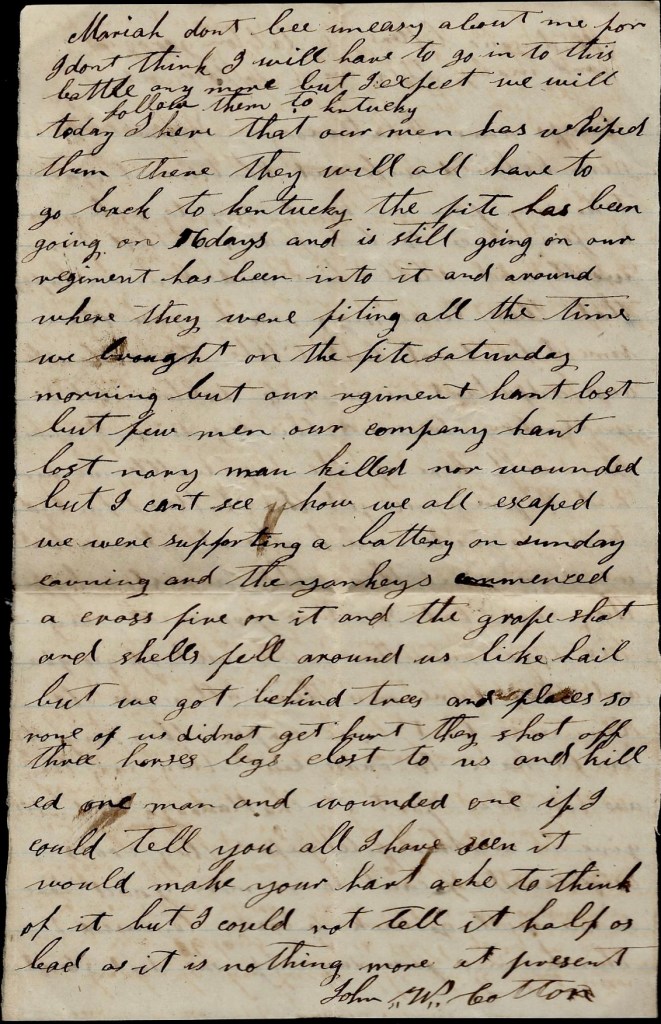 Mariah dont bee uneasy about me for
I dont think I will have to go in to this
battle any more but I expect we will
follow them to kntucky
today I here that our men has whiped
them there they will all have to
go back to kentucky the fite has been
going on 6days and is still going on our
regiment has been into it and around
where they were fiting all the time
we brought on the fite saturday
morning but our rgiment hant lost
but few men our company hant
lost nary man killed nor wounded
but I cant see how we all escaped
we were supporting a battery on sunday
eavning and the yankeys commenced
a cross fire on it and the grape shot
and shells fell around us like hail
but we got behind trees and places so
none of us didnot get hurt they shot off
three horses legs clost to us and kill
ed one man and wounded one if I
could tell you all I have seen it
would make your hart ache to think
of it but I could not tell it half as
bad as it is nothing more at present
John W. Cotton